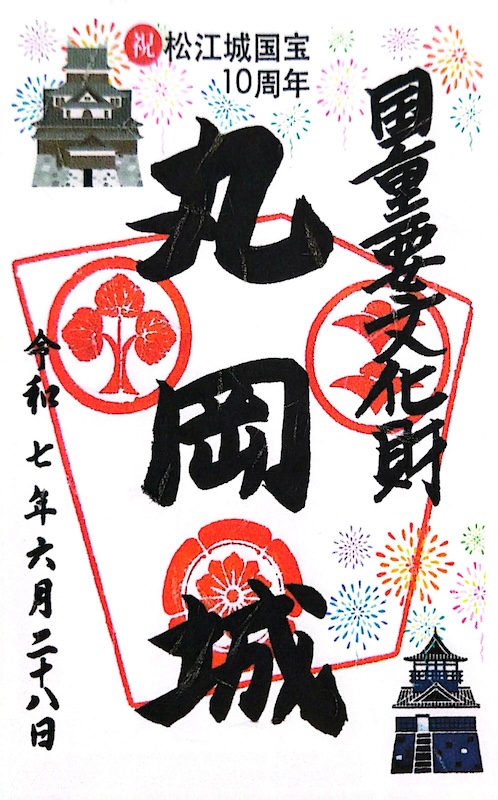 祝松江城国宝
10周年
国重要文化財
丸岡城
令和七年六月二十八日